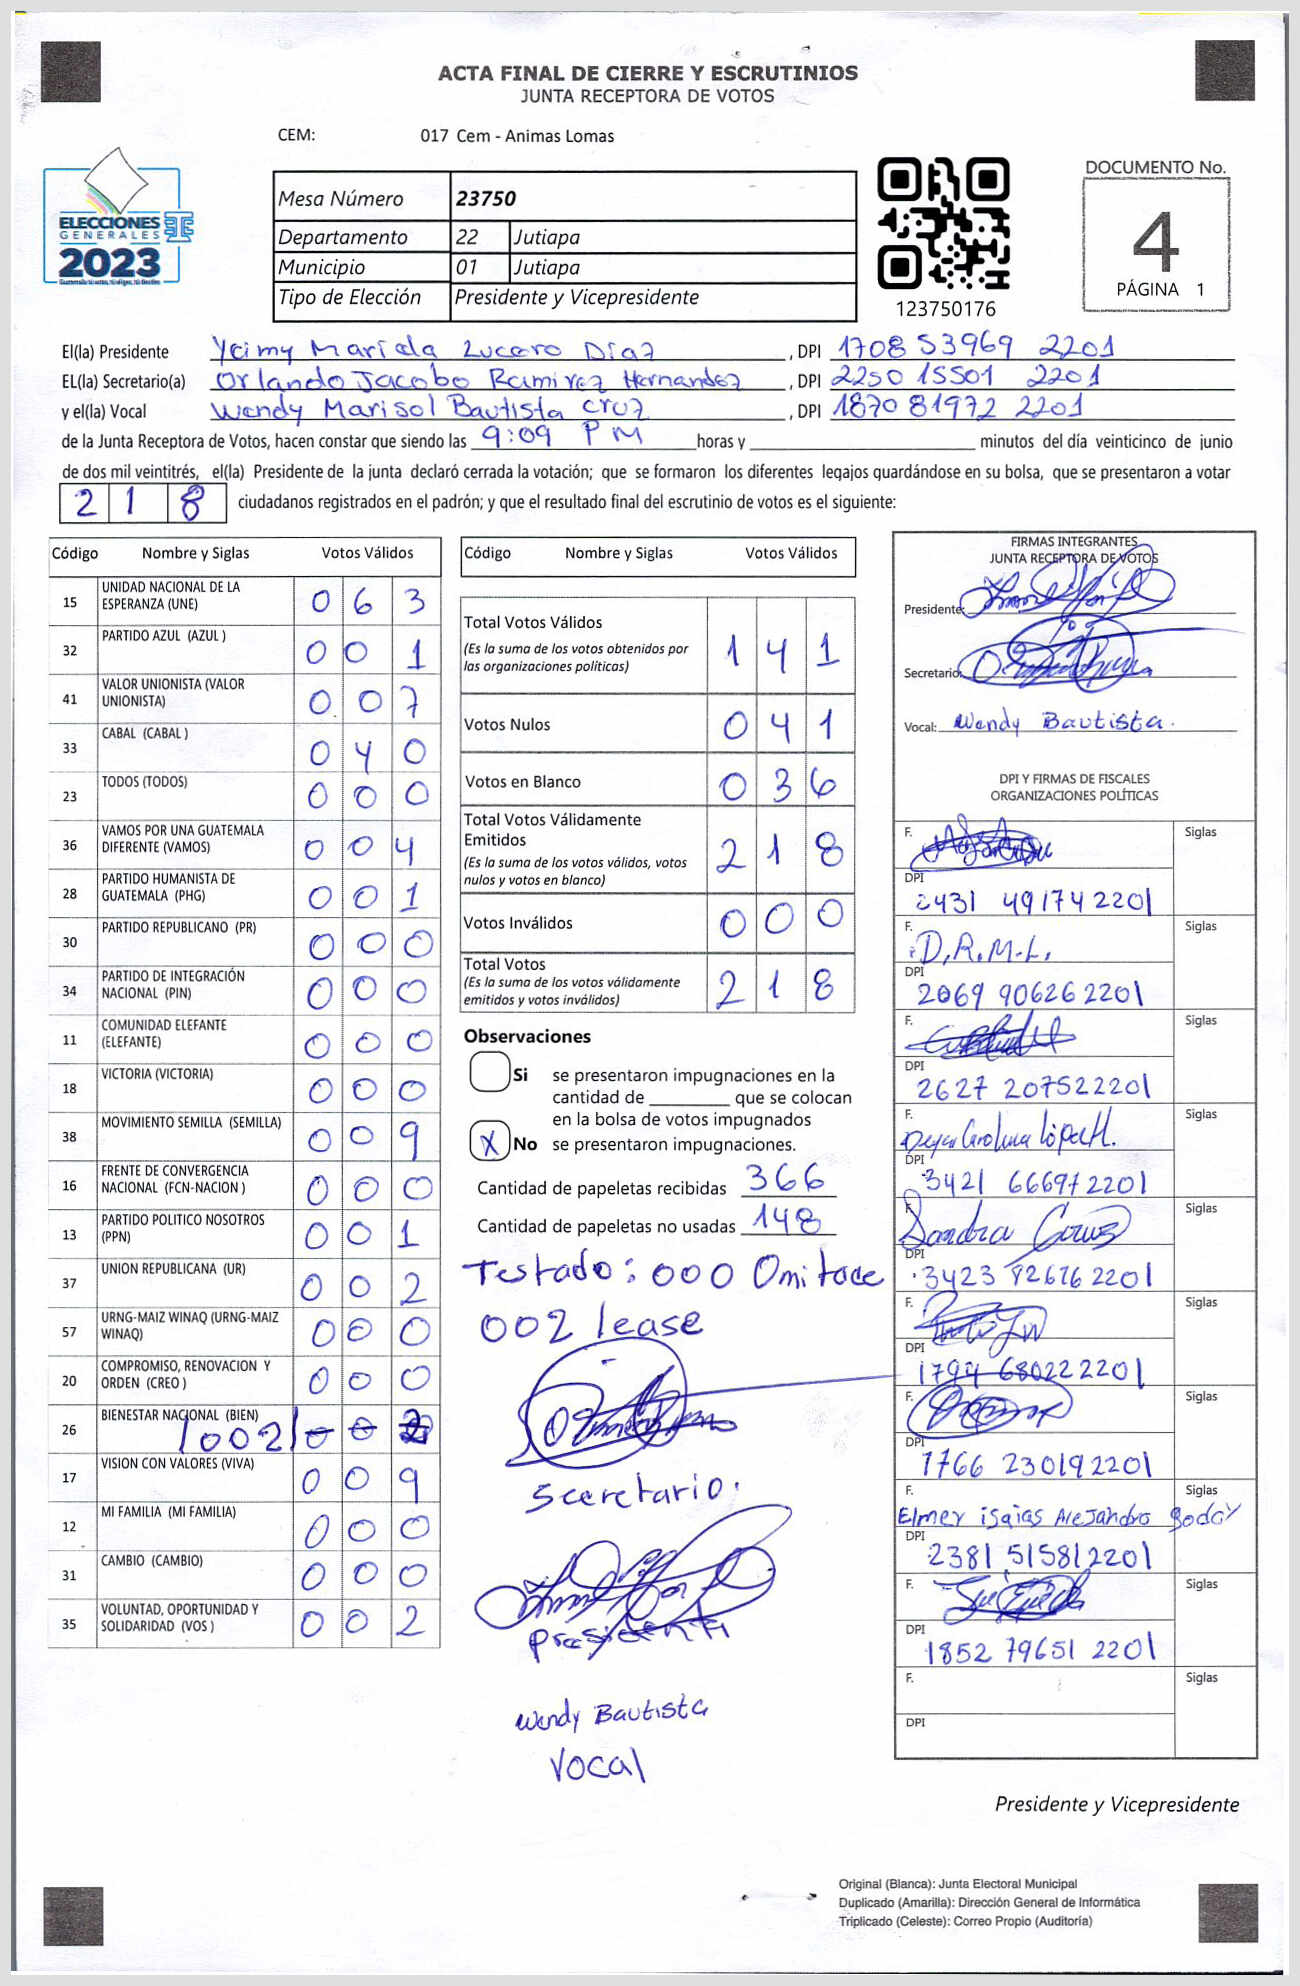 ACTA FINAL DE CIERRE Y ESCRUTINIOS
JUNTA RECEPTORA DE VOTOS
CEM: 017 Cem - Animas Lomas
ELECCIONES
GENERALES
2023
Mesa Número 23750
Departamento 22 Jutiapa
Municipio 01 Jutiapa
Tipo de Elección Presidente y Vicepresidente
123750176
DOCUMENTO No.
4
PÁGINA 1
El(la) Presidente Yeimy Mariela Lucero Díaz , DPI 1708 53969 2201
EL(la) Secretario(a) Orlando Jacobo Ramirez Hernandez , DPI 2250 15501 2201
y el(la) Vocal Wendy Marisol Bautista cruz , DPI 1870 81972 2201
de la Junta Receptora de Votos, hacen constar que siendo las 9:09 PM horas y minutos del día veinticinco de junio
de dos mil veintitrés, el(la) Presidente de la junta declaró cerrada la votación; que se formaron los diferentes legajos guardándose en su bolsa, que se presentaron a votar
218 ciudadanos registrados en el padrón; y que el resultado final del escrutinio de votos es el siguiente:
Código Nombre y Siglas Votos Válidos
15 UNIDAD NACIONAL DE LA ESPERANZA (UNE) 0 6 3
32 PARTIDO AZUL (AZUL ) 0 0 1
41 VALOR UNIONISTA (VALOR UNIONISTA) 0 0 7
33 CABAL (CABAL ) 0 4 0
23 TODOS (TODOS) 0 0 0
36 VAMOS POR UNA GUATEMALA DIFERENTE (VAMOS) 0 0 4
28 PARTIDO HUMANISTA DE GUATEMALA (PHG) 0 0 1
30 PARTIDO REPUBLICANO (PR) 0 0 0
34 PARTIDO DE INTEGRACIÓN NACIONAL (PIN) 0 0 0
11 COMUNIDAD ELEFANTE (ELEFANTE) 0 0 0
18 VICTORIA (VICTORIA) 0 0 0
38 MOVIMIENTO SEMILLA (SEMILLA) 0 0 9
16 FRENTE DE CONVERGENCIA NACIONAL (FCN-NACION ) 0 0 0
13 PARTIDO POLITICO NOSOTROS (PPN) 0 0 1
37 UNION REPUBLICANA (UR) 0 0 2
57 URNG-MAIZ WINAQ (URNG-MAIZ WINAQ) 0 0 0
20 COMPROMISO, RENOVACION Y ORDEN (CREO ) 0 0 0
26 BIENESTAR NACIONAL (BIEN) /002/ 0 0 2
17 VISION CON VALORES (VIVA) 0 0 9
12 MI FAMILIA (MI FAMILIA) 0 0 0
31 CAMBIO (CAMBIO) 0 0 0
35 VOLUNTAD, OPORTUNIDAD Y SOLIDARIDAD (VOS ) 0 0 2
Código Nombre y Siglas Votos Válidos
Total Votos Válidos 1 4 1
(Es la suma de los votos obtenidos por las organizaciones politicas)
Votos Nulos 0 4 1
Votos en Blanco 0 3 6
Total Votos Válidamente Emitidos 2 1 8
(Es la suma de los votos válidos, votos nulos y votos en blanco)
Votos Inválidos 0 0 0
Total Votos 2 1 8
(Es la suma de los votos válidamente emitidos y votos inválidos)
Observaciones
Si se presentaron impugnaciones en la
cantidad de que se colocan
en la bolsa de votos impugnados
X No se presentaron impugnaciones.
Cantidad de papeletas recibidas 366
Cantidad de papeletas no usadas 148
Testado: 000 Omitase
002 lease
Secretario.
Presidente
Wendy Bautista
Vocal
FIRMAS INTEGRANTES
JUNTA RECEPTORA DE VOTOS
Presidente:
Secretario:
Vocal: Wendy Bautista.
DPI Y FIRMAS DE FISCALES
ORGANIZACIONES POLÍTICAS
F. Siglas
DPI 2431 49174 2201
F. D.R.M.L. Siglas
DPI 2069 90626 2201
F. Siglas
DPI 2627 20752 2201
F. Siglas
DPI 3421 66697 2201
F. Sandra Siglas
DPI 3423 82676 2201
F. Siglas
DPI 1794 68022 2201
F. Siglas
DPI 1766 23019 2201
F. Elmer isaias Alejandro Godoy Siglas
DPI 2381 51581 2201
F. Siglas
DPI 1852 79651 2201
F. Siglas
DPI
Presidente y Vicepresidente
Original (Blanca): Junta Electoral Municipal
Duplicado (Amarilla): Dirección General de Informática
Triplicado (Celeste): Correo Propio (Auditoría)